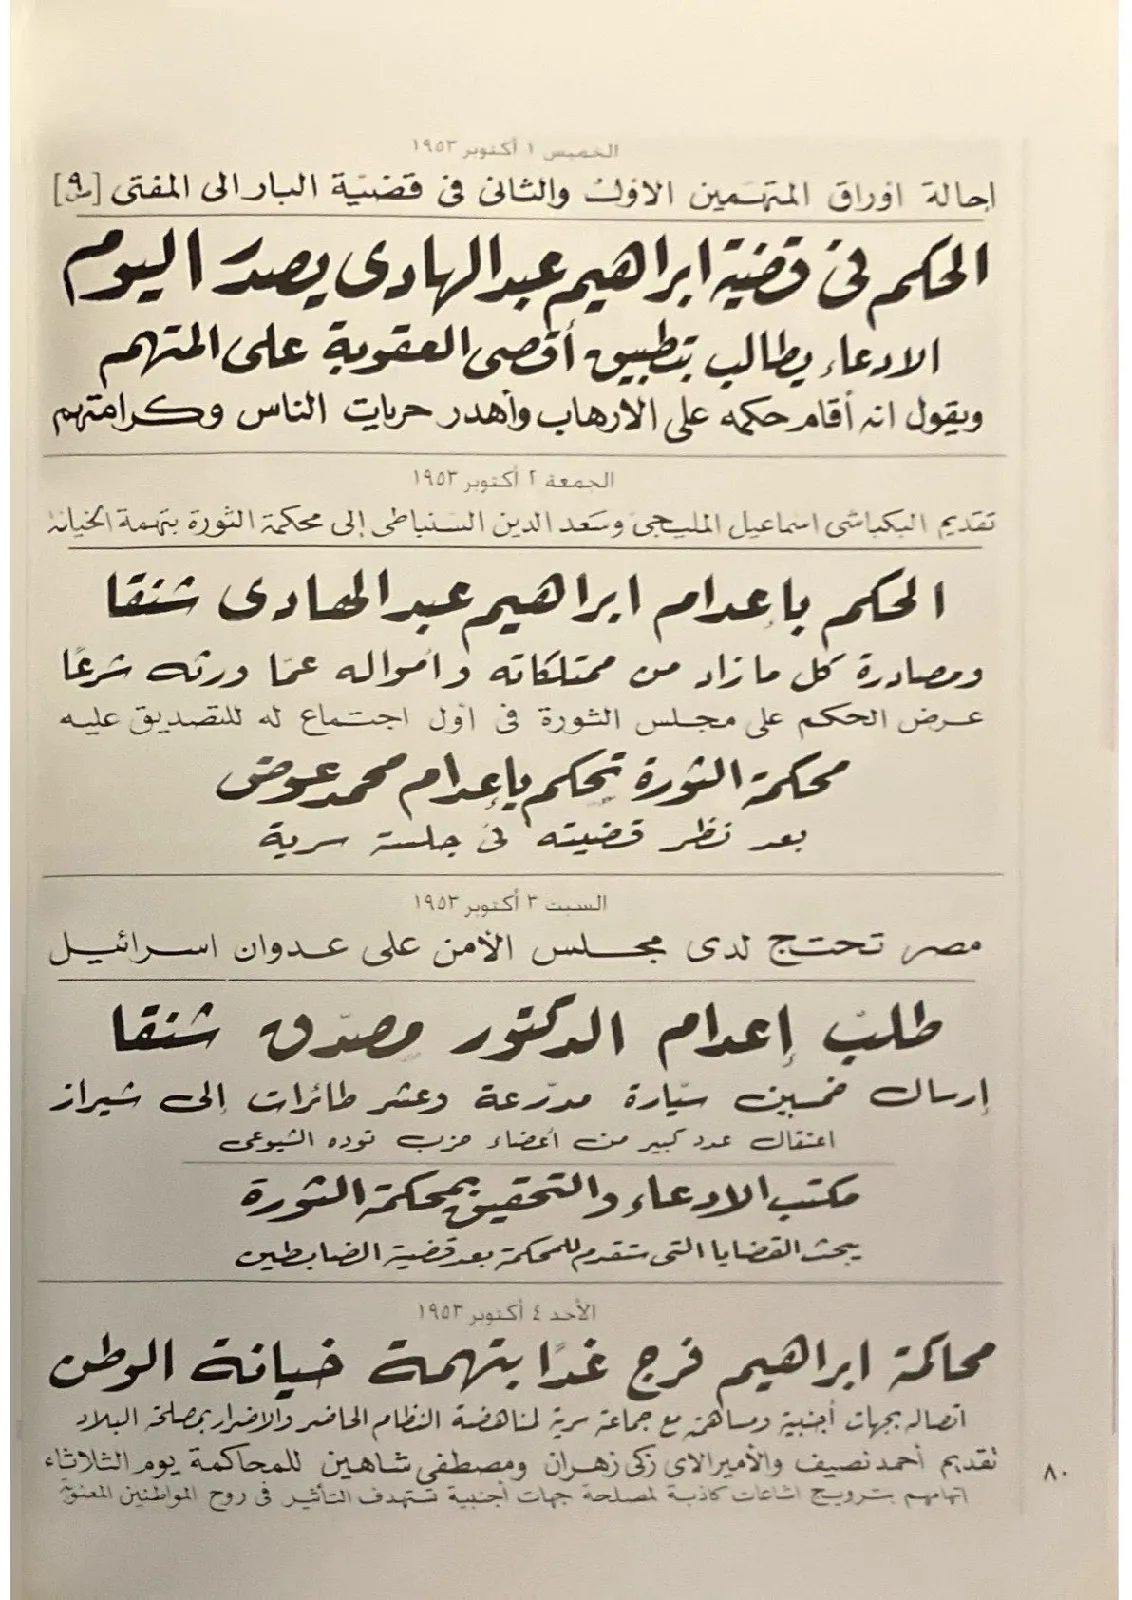 الخميس ١ أكتوبر ١٩٥٣
إحالة أوراق المتهمين الأول والثاني في قضية البار الى المفتى [ص٩]
الحكم في قضية ابراهيم عبد الهادى يصدر اليوم
الادعاء يطالب بتطبيق أقصى العقوبة على المتهم
ويقول انه أقام حكمه على الارهاب وأهدر حريات الناس وكرامتهم
الجمعة ٢ أكتوبر ١٩٥٣
تقديم البكباشى اسماعيل المليجى وسعد الدين السنباطى إلى محكمة الثورة بتهمة الخيانة
الحكم بإعدام ابراهيم عبد الهادى شنقا
ومصادرة كل ما زاد من ممتلكاته وأمواله عمّا ورثه شرعًا
عرض الحكم على مجلس الثورة في أول اجتماع له للتصديق عليه
محكمة الثورة تحكم بإعدام محمد عوض
بعد نظر قضيته في جلسة سرية
السبت ٣ أكتوبر ١٩٥٣
مصر تحتج لدى مجلس الأمن على عدوان اسرائيل
طلب إعدام الدكتور مصدّق شنقا
إرسال خمسين سيّارة مدرّعة وعشر طائرات إلى شيراز
اعتقال عدد كبير من أعضاء حزب توده الشيوعى
مكتب الادعاء والتحقيق بمحكمة الثورة
يبحث القضايا التى ستقدم للمحكمة بعد قضية الضابطين
الأحد ٤ أكتوبر ١٩٥٣
محاكمة ابراهيم فرج غدًا بتهمة خيانة الوطن
اتصاله بجهات أجنبية ومساهمته مع جماعة سرية لمناهضة النظام الحاضر والاضرار بمصلحة البلاد
تقديم أحمد نصيف والأميرالاى زكى زهران ومصطفى شاهين للمحاكمة يوم الثلاثاء
اتهامهم بترويج اشاعات كاذبة لمصلحة جهات أجنبية تستهدف التأثير في روح المواطنين المعنوية
٨٠